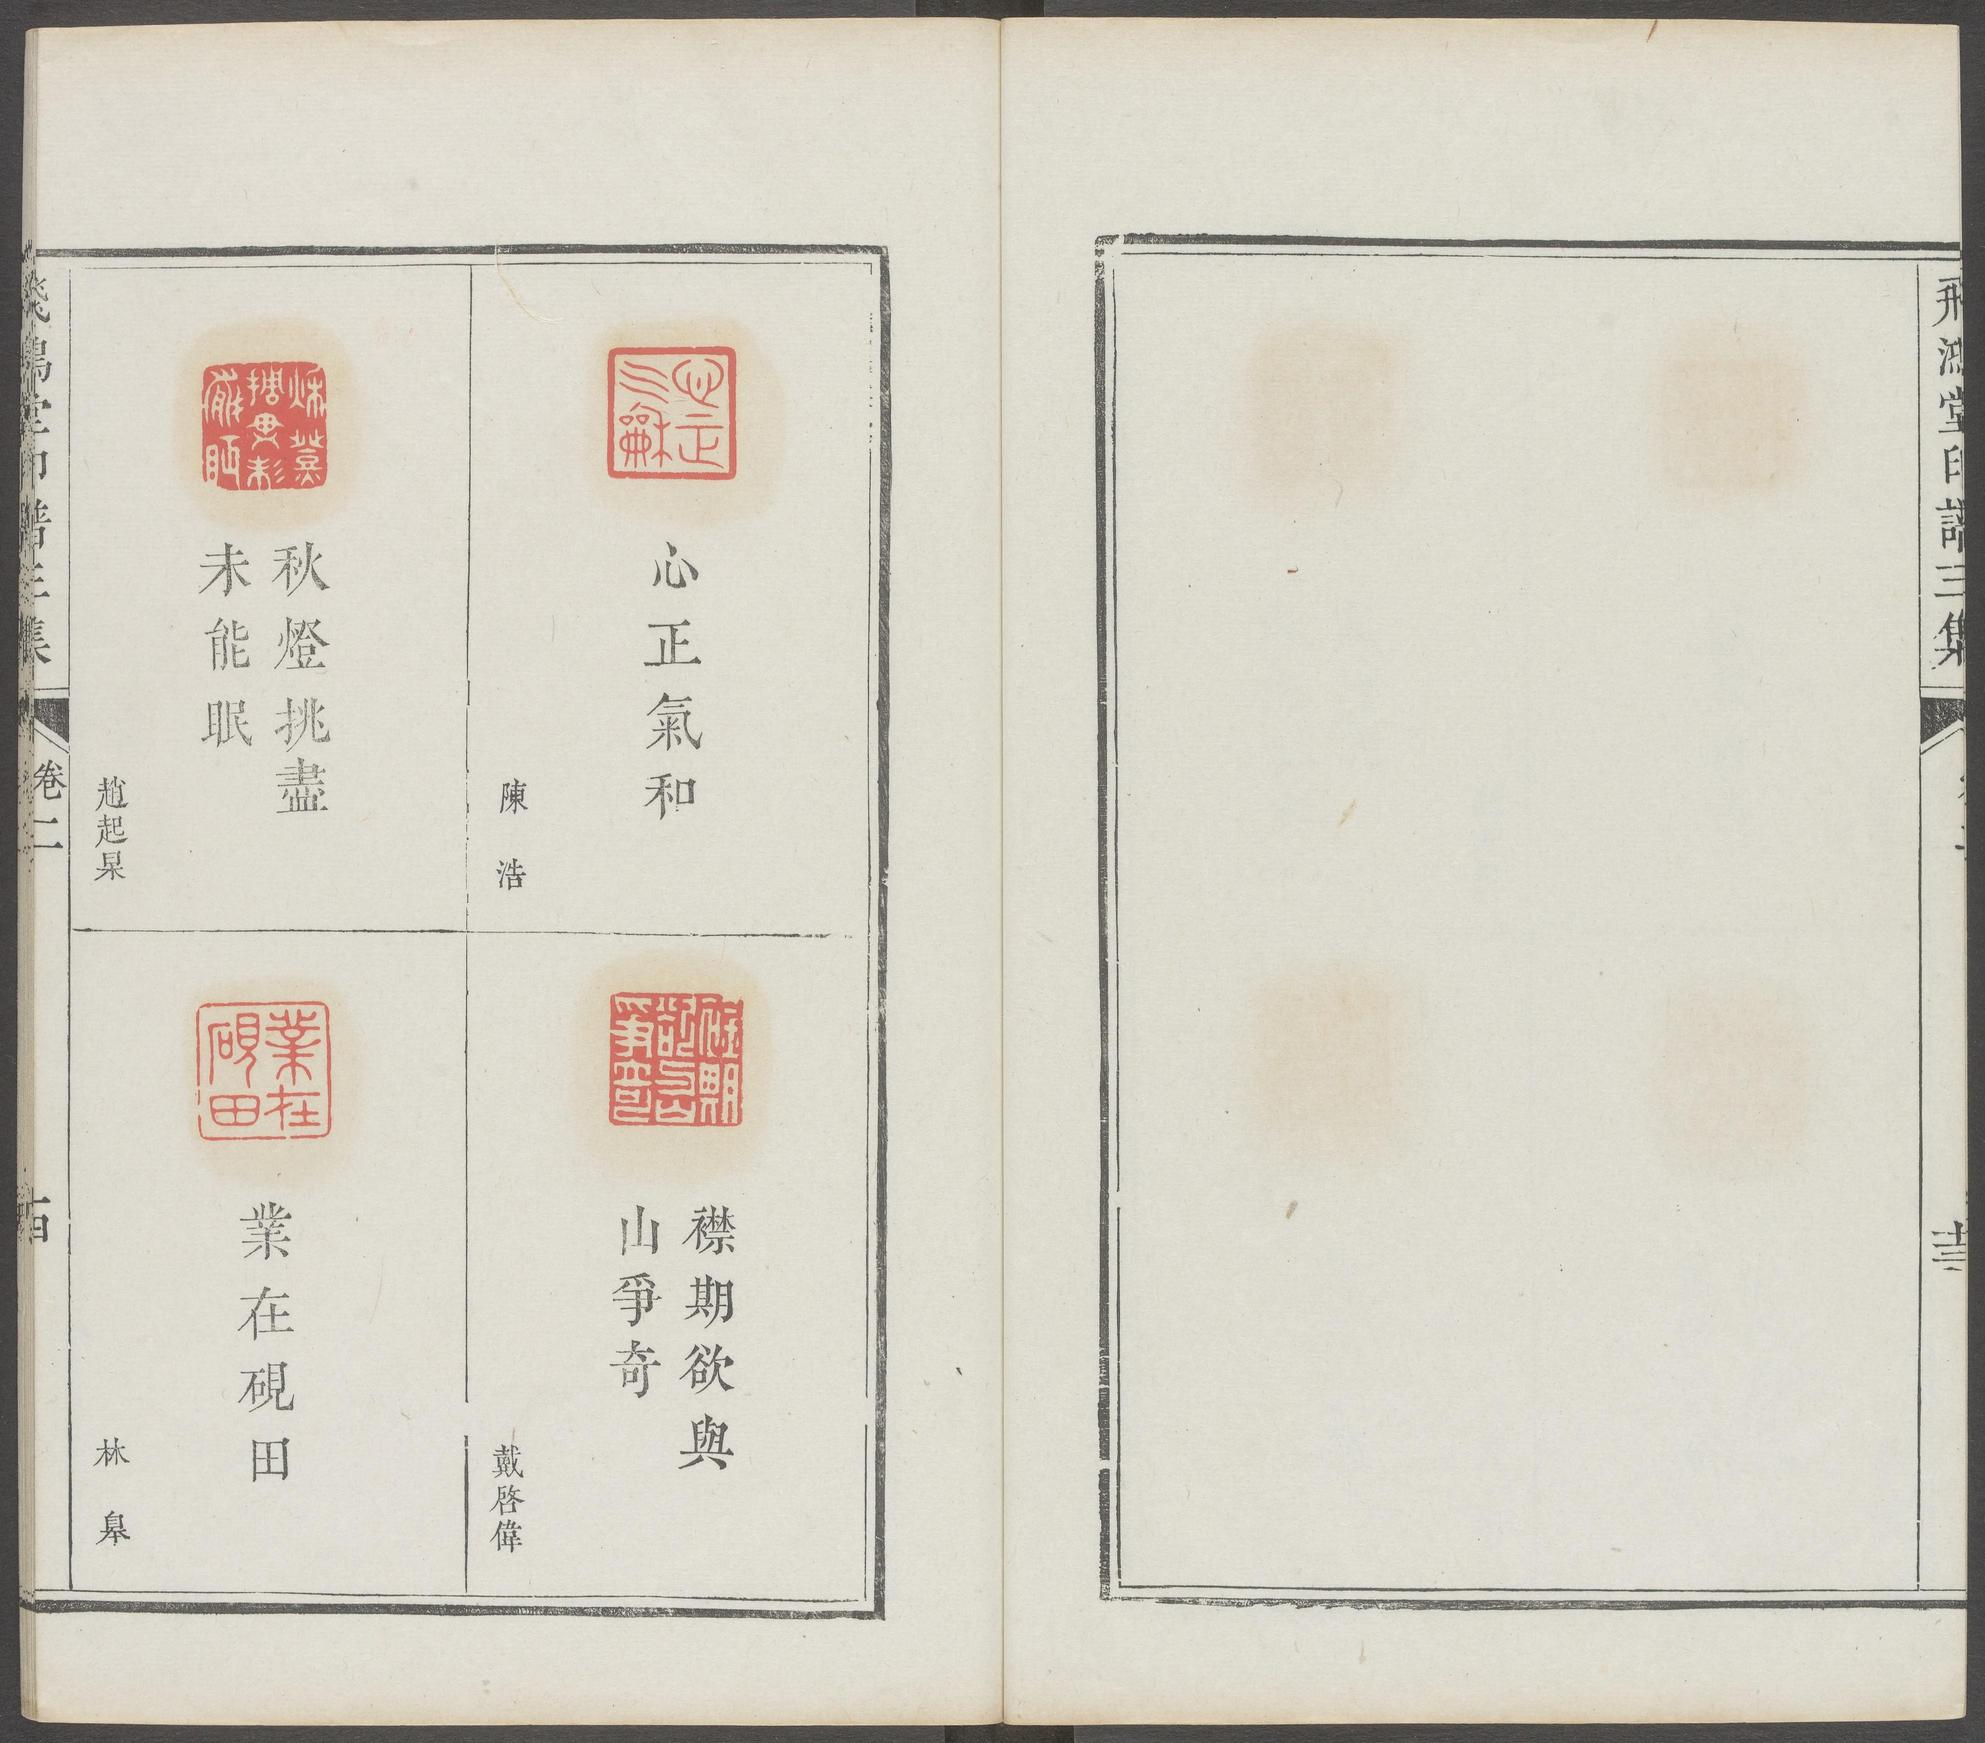 飛鴻堂印譜三集
心正氣和
陳浩
襟期欲與
山爭奇
戴啓偉
秋燈挑盡
未能眠
趙起杲
業在硯田
林皋
飛鴻堂印譜三集
卷二